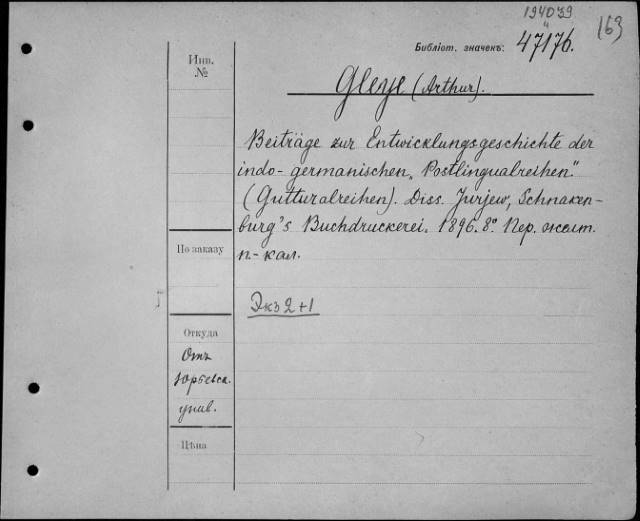 194039
(63
Библіот. значекъ: 47176.
Инв.
№
Gleye (Arthur).
Beiträge zur Entwicklungsgeschichte der
indo-germanischen „Postlingualreihen“
(Gutturalreihen). Diss. Jurjew, Schnaken-
burg's Buchdruckerei. 1896. 8º. Пер. желт.
п-кал.
По заказу
Экз 2+1
Откуда
Отъ
Юрьевск.
унив.
Цѣна